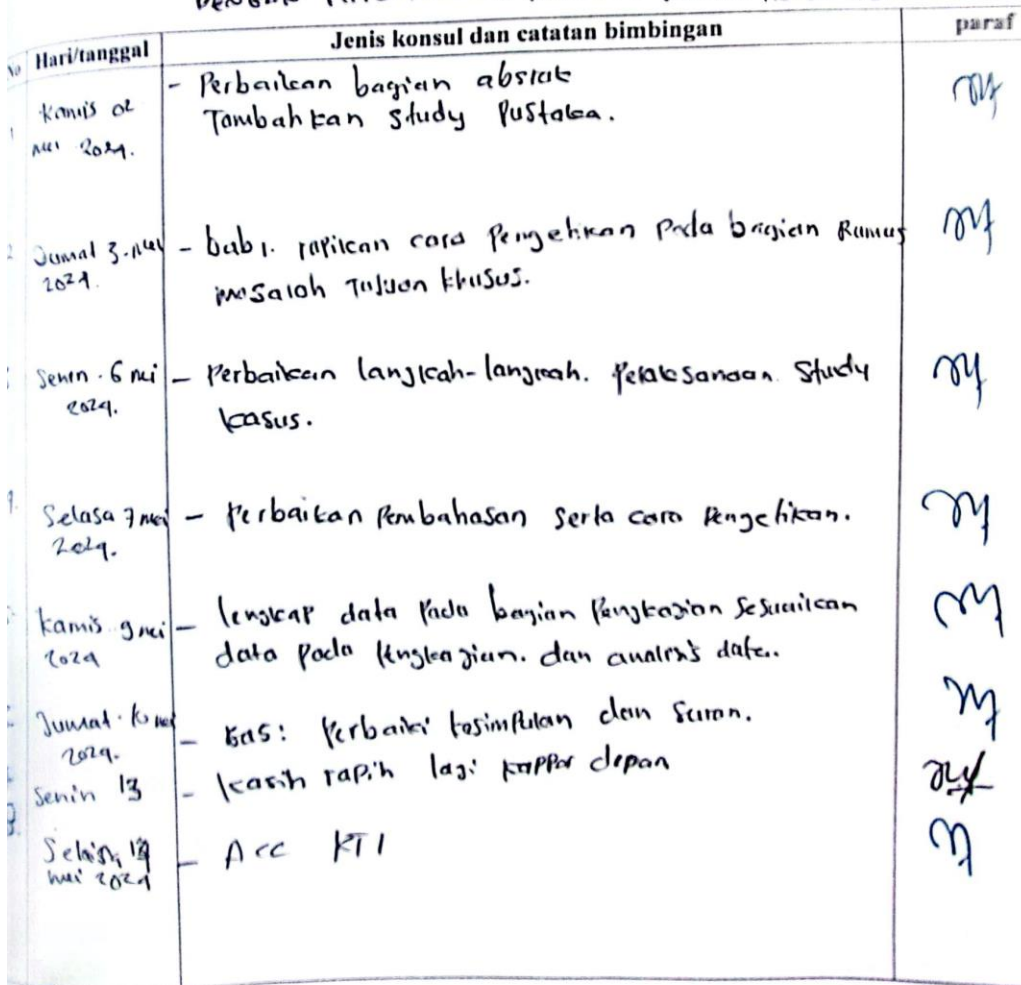 No Hari/tanggal Jenis konsul dan catatan bimbingan paraf
1 Kamis 02 - Perbaikan bagian abstrak
mei 2024. Tambahkan study Pustaka.
2 Jumat 3. mei - bab 1. rapikan cara Pengetikan Pada bagian Rumus
2024. masalah Tujuan khusus.
Senin . 6 mei - Perbaikan langkah-langkah. Pelaksanaan Study
2024. kasus.
Selasa 7 mei - Perbaikan Pembahasan Serta cara Pengetikan.
2024.
kamis 9 mei - lengkap data Pada bagian Pengkajian Sesuaikan
2024 data pada Pengkajian. dan analisis data..
Jumat . 10 mei
2024. - Perbaiki kesimpulan dan Saran.
Senin 13 - kasih rapih lagi depan
Selasa, - Acc KTI
mei 2024